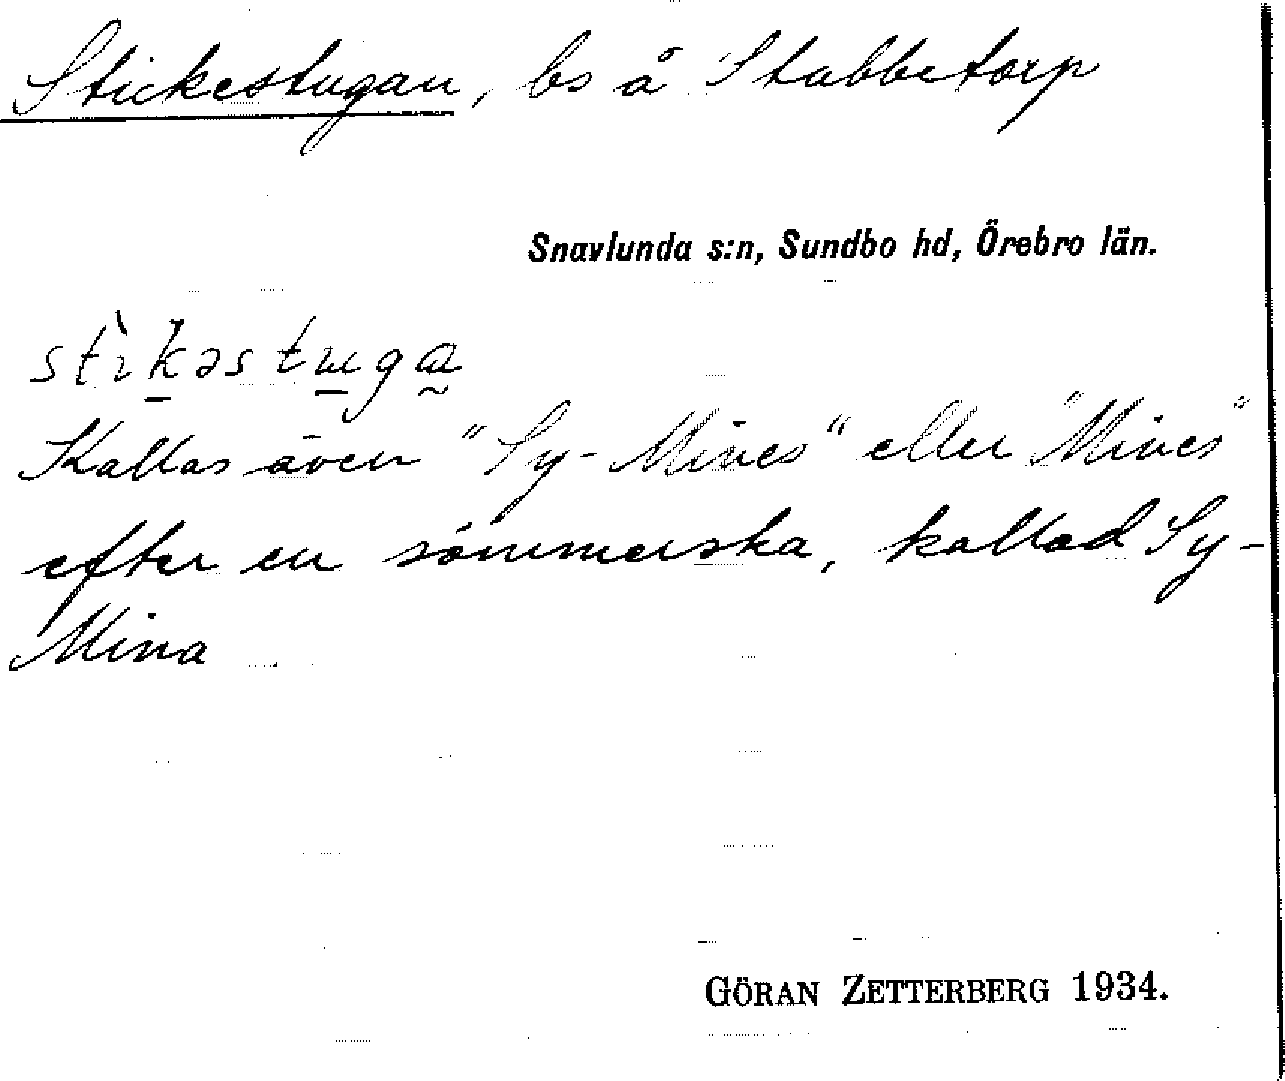 Stickestugan, bs å Stubbetorp
Snavlunda s:n, Sundbo hd, Örebro län.
Kallas även "Sy-Mines" eller "Mines"
efter en sömmerska, kallad Sy-
Mina
GÖRAN ZETTERBERG 1934.